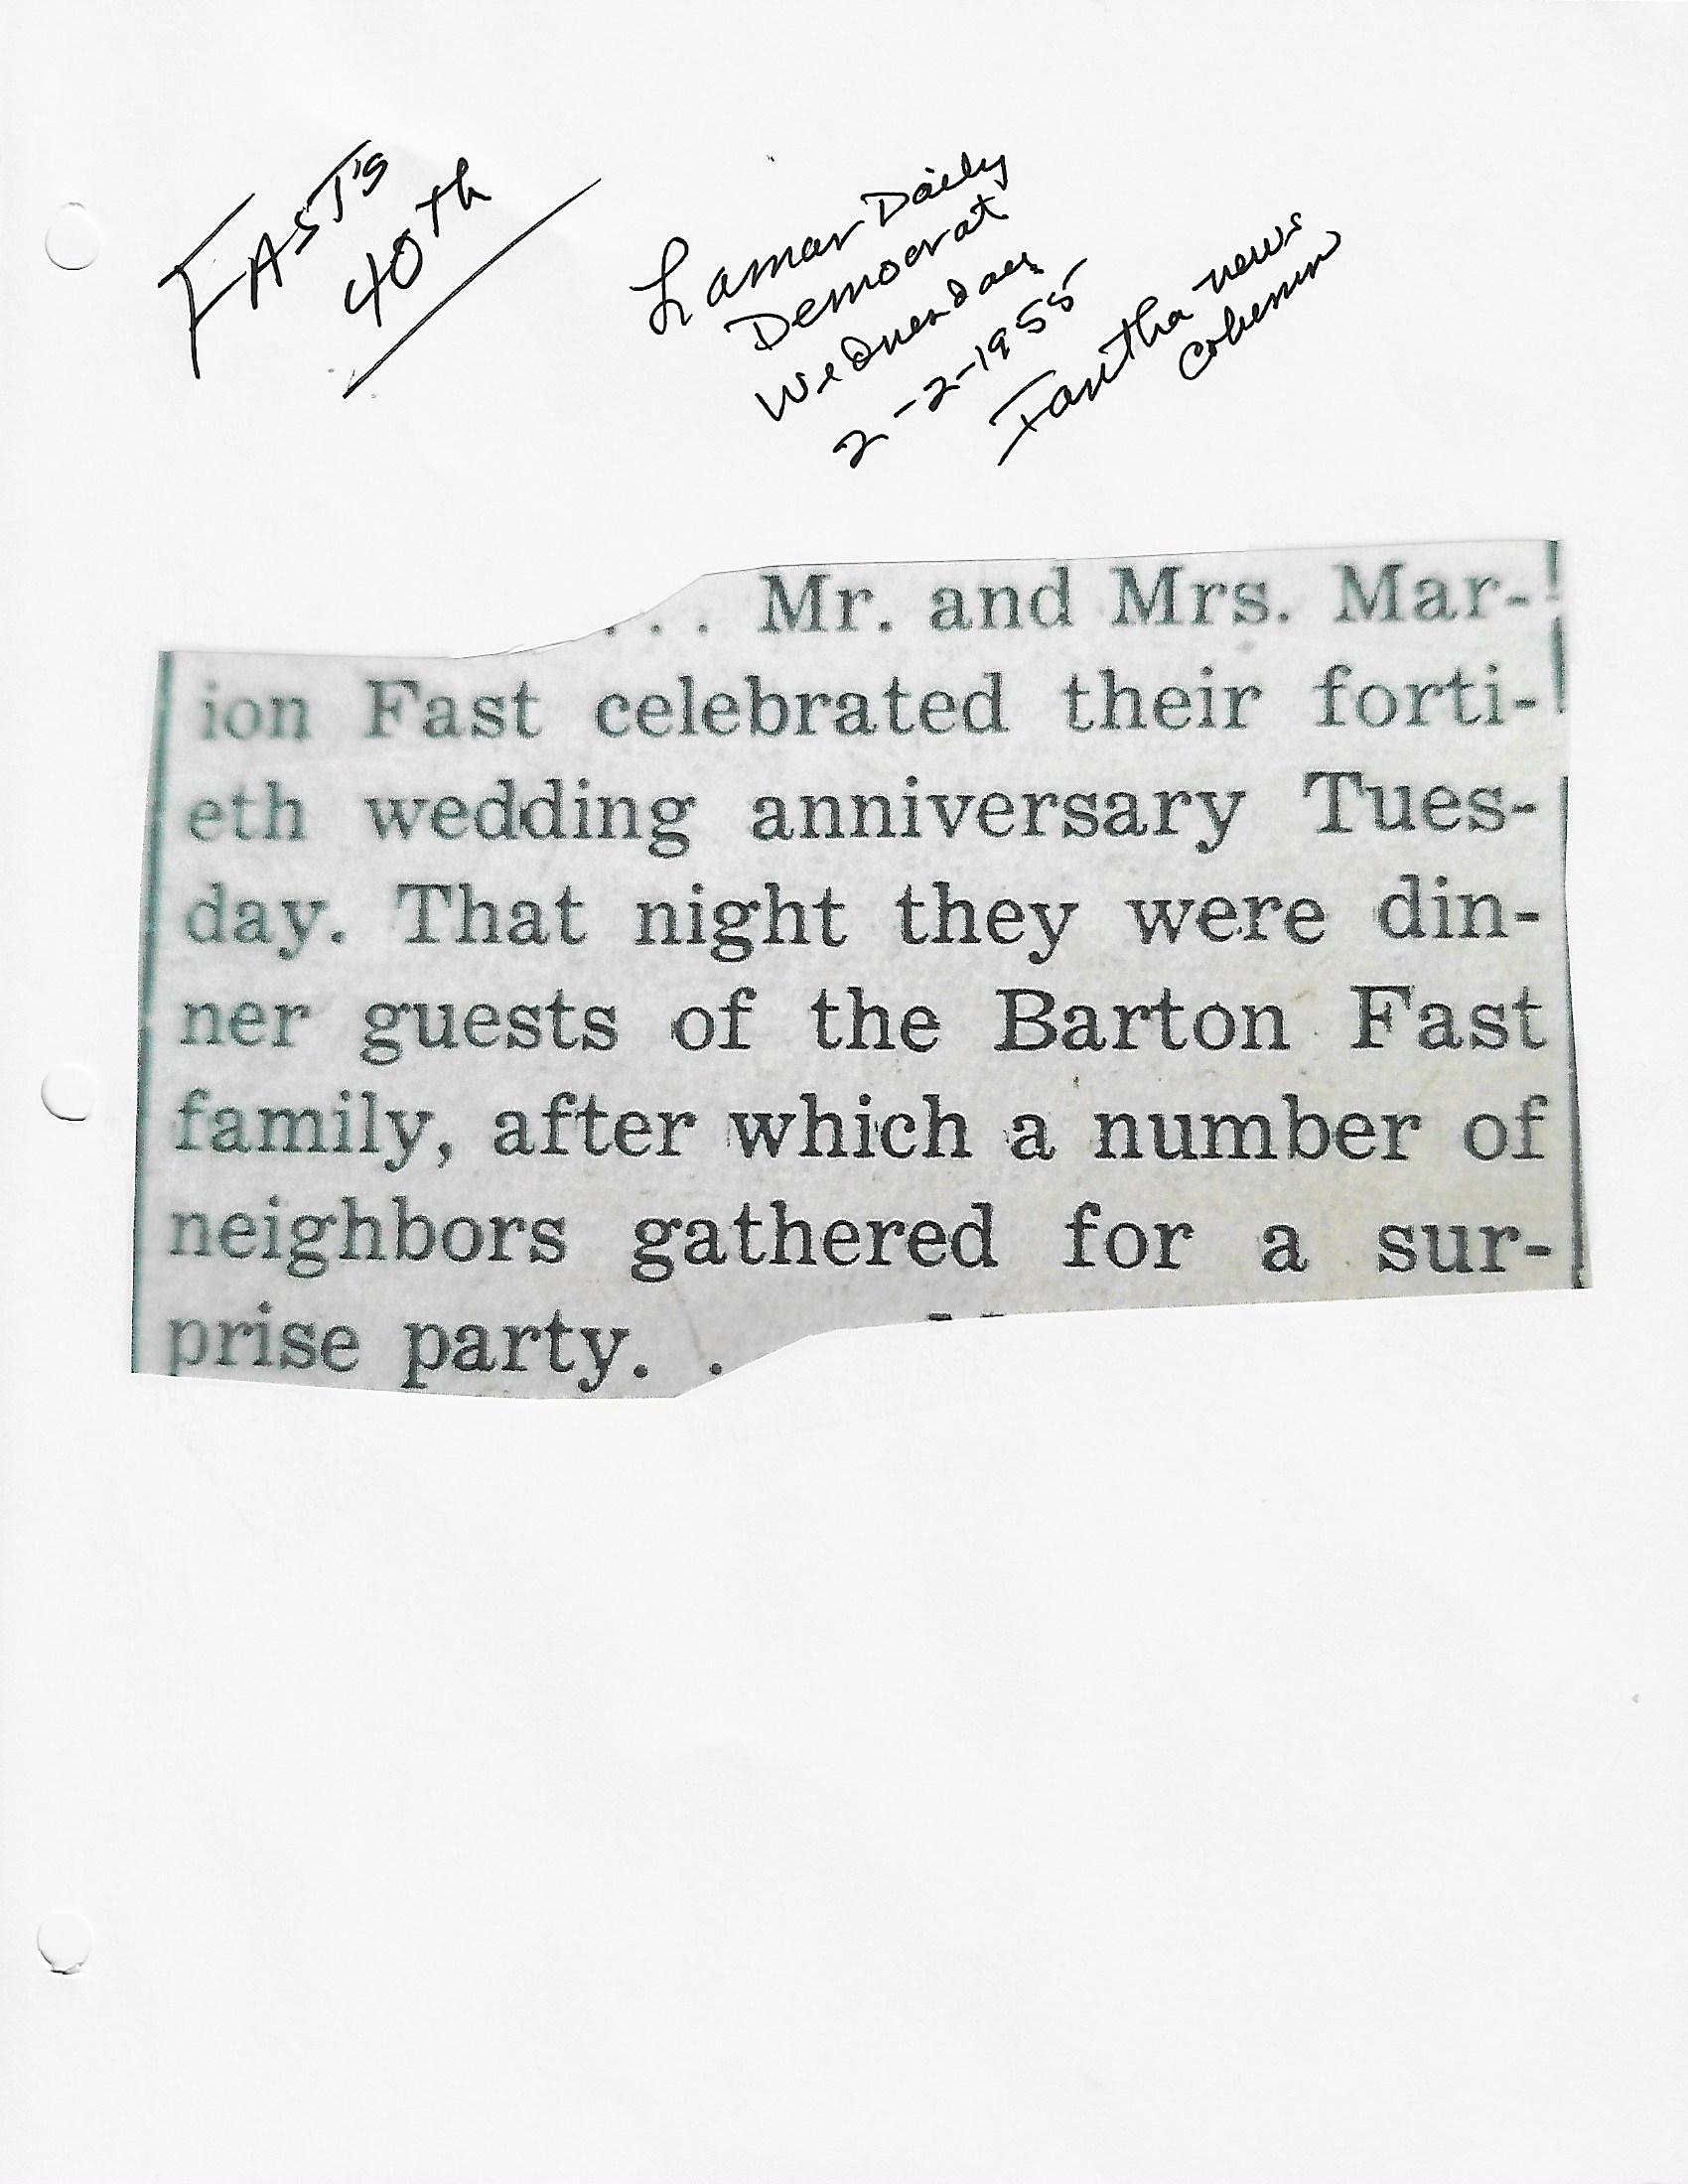 FAST's
40th
Lamar Daily
Democrat
Wednesday
2-2-1955
Iantha news
Column
. . . Mr. and Mrs. Mar-
ion Fast celebrated their forti-
eth wedding anniversary Tues-
day. That night they were din-
ner guests of the Barton Fast
family, after which a number of
neighbors gathered for a sur-
prise party. .